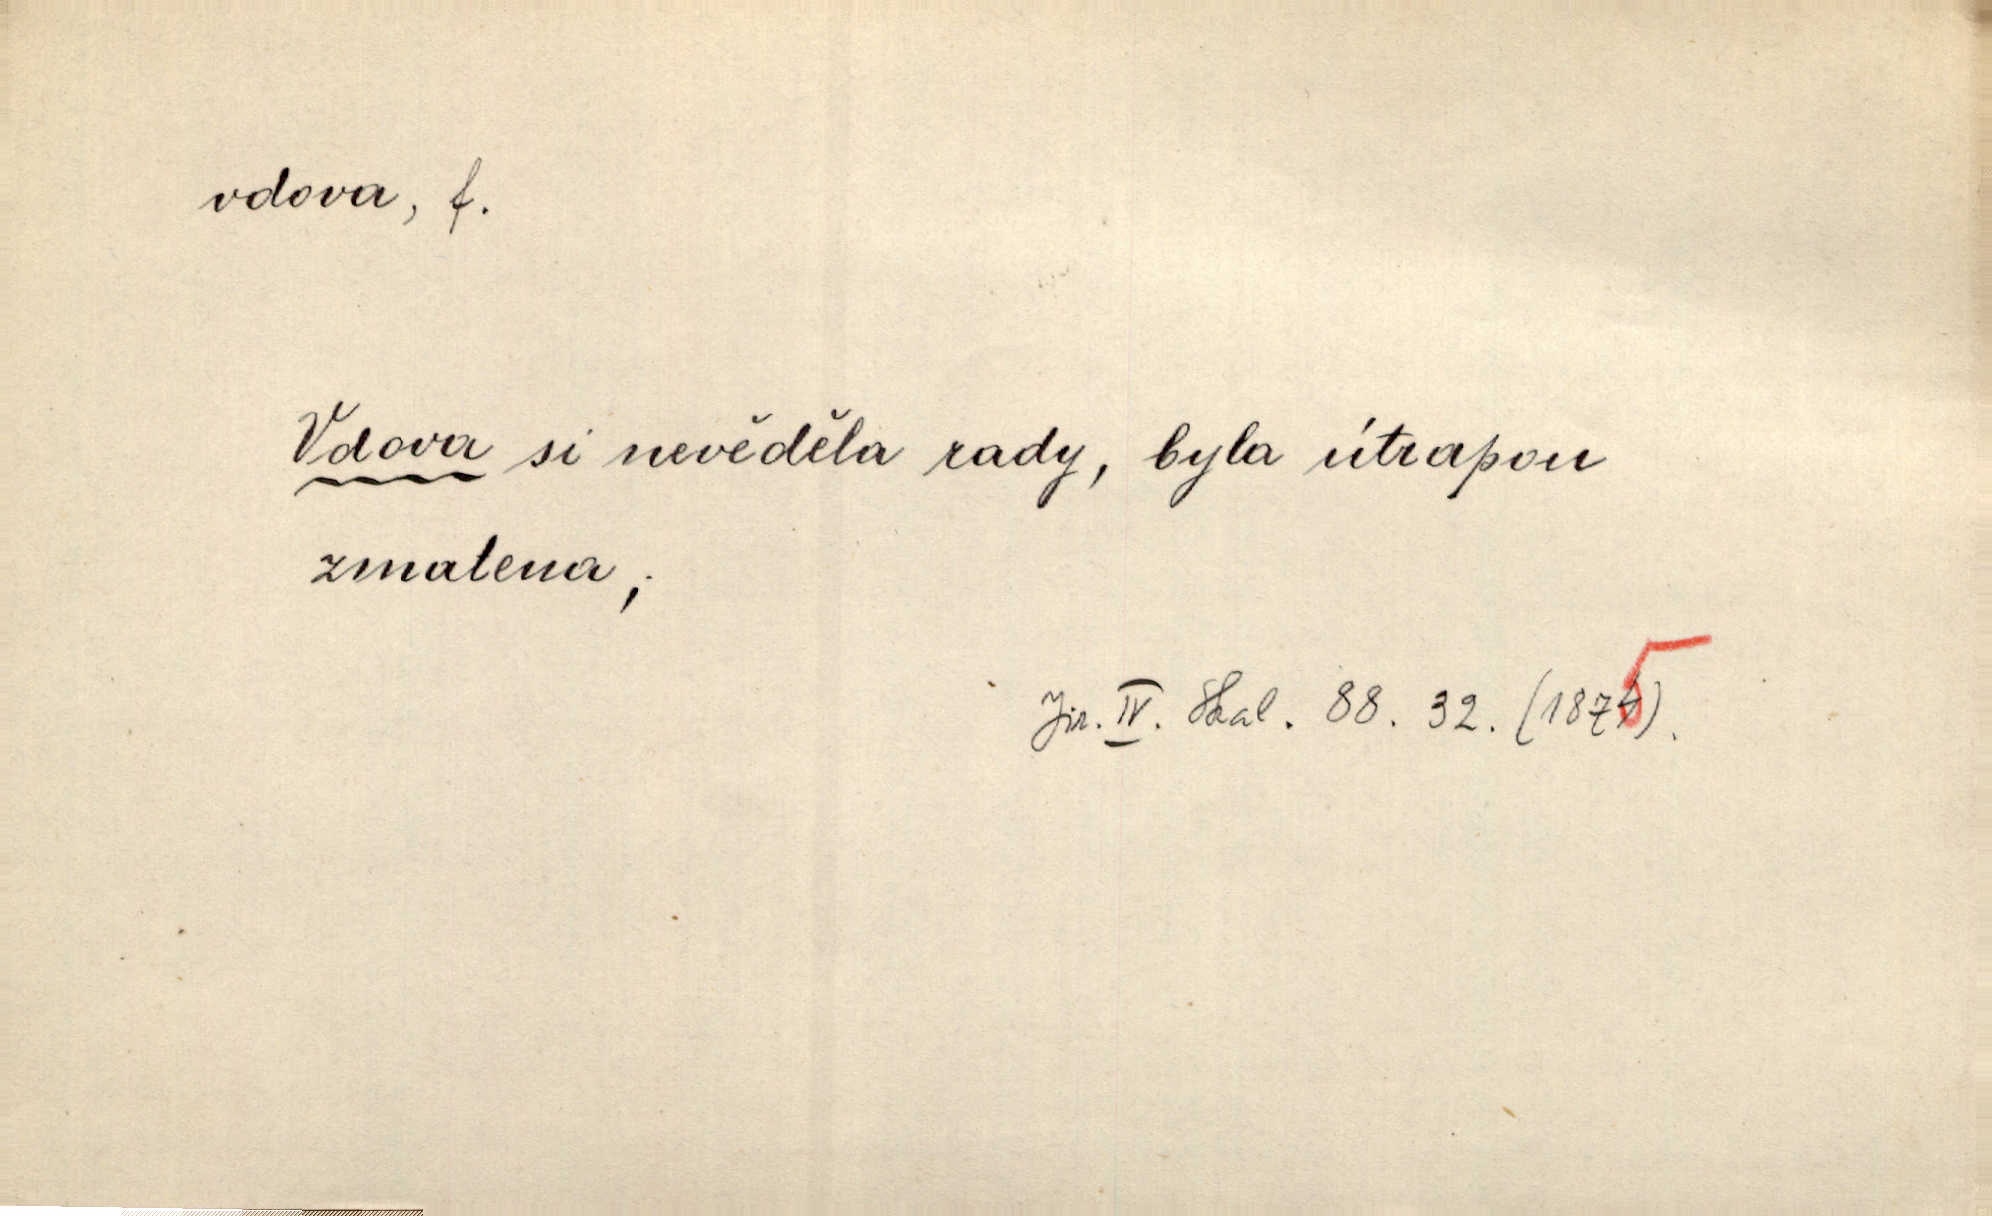 vdova, f.
Vdova si nevěděla rady, byla útrapou
zmatena,
Jir. IV. Skal. 88. 32. (1875).